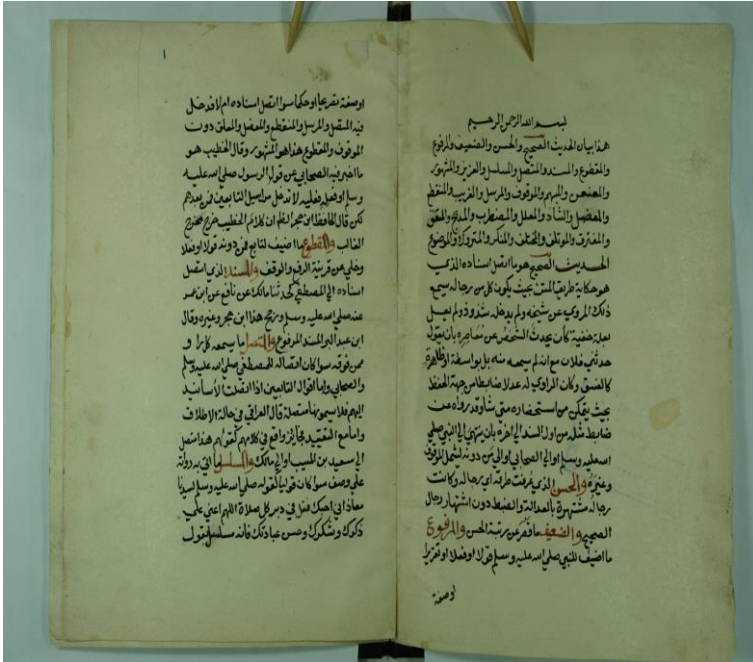 بسم الله الرحمن الرحيم
هذا بيان الحديث الصحيح والحسن والضعيف والمرفوع
والمقطوع والمسند والمتصل والمسلسل والعزيز والمشهور
والمعنعن والمبهم والموقوف والمرسل والغريب والمنقطع
والمعضل والشاذ والمعلل والمضطرب والمدبج والمتفق
والمفترق والموتلف والمختلف والمنكر والمتروك والموضوع
الحديث الصحيح هو ما اتصل اسناده الذي
هو حكاية طريق المتن بحيث يكون كل من رجاله سمع
ذلك المروي عن شيخه ولم يدخله شذوذ ولم يعل
بعلة خفية كأن يحدث الشخص عن معاصره بان يقول
حدثني فلان مع انه لم يسمعه منه بل بواسطة او ظاهرة
كالفسق وكان الراوي له عدلا ضابطا من جهة الحفظ
بحيث يتمكن من استحضاره متى شاء ورواه عن
ضابط مثله من اول السند الي اخره بان ينتهي الي النبي صلي
اسه عليه وسلم او الي الصحابي او الي من دونه ليشمل الموقوف
وغيره والحسن الذي عرفت طرقه اي رجاله وكانت
رجاله مشتهرة بالعدالة والضبط دون اشتهار رجال
الصحيح والضعيف ما قصر عن رتبة الحسن والمرفوع
ما اضيف للنبي صلي اسه عليه وسلم قولا او فعلا او تقريرا
او صفة
او صفة تصريحا او حكما سوا اتصل اسناده ام لا فدخل
فيه المتصل والمرسل والمنقطع والمعضل والمعلق دون
الموقوف والمقطوع هذا هو المشهور وقال الخطيب هو
ما اخبر فيه الصحابي عن قول الرسول صلي اسه عليه
وسلم او فعله فعليه لا تدخل مراسيل التابعين فمن بعدهم
لكن قال الحافظ ابن حجر الظاهر ان كلام الخطيب خرج مخرج
الغالب والمقطوع ما اضيف لتابع فمن دونه قولا او فعلا
وخلي عن قرينة الرفع والوقف والمسند الذي اتصل
اسناده الي المصطفي كحدثنا مالك عن نافع عن ابن عمر
عنه صلي اسه عليه وسلم ورجح هذا ابن حجر وغيره وقال
ابن عبد البر المسند المرفوع والمتصل ما سمعه كل راو
ممن فوقه سوا كان اتصاله للمصطفي صلي اسه عليه وسلم
والصحابي واما اقوال التابعين اذا اتصلت الأسانيد
اليهم فلا يسمونها متصلة قال العراقي في حالة الاطلاق
واما مع التقييد فجائز واقع في كلامهم كقولهم هذا متصل
الي سعيد بن المسيب او الي مالك والمسلسل ما اتي به رواته
علي وصف سوا كان قوليا كقوله صلي اسه عليه وسلم لسيدنا
معاذ اني احبك فقل في دبر كل صلاة اللهم اعني علي
ذكرك وشكرك وحسن عبادتك فانه مسلسل بقول